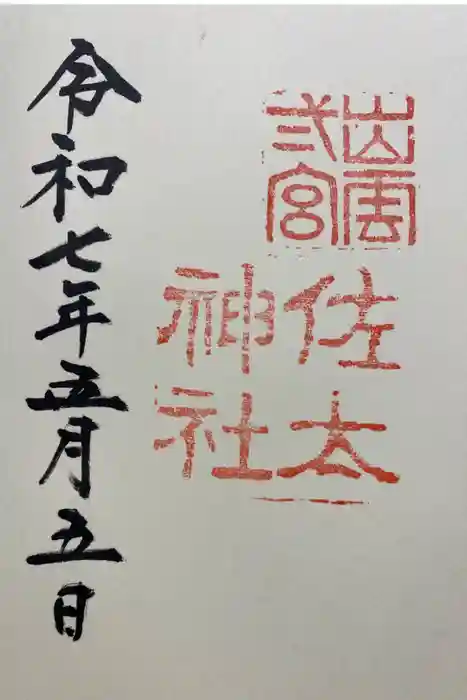 出雲
弍宮
佐太
神社
令和七年五月五日